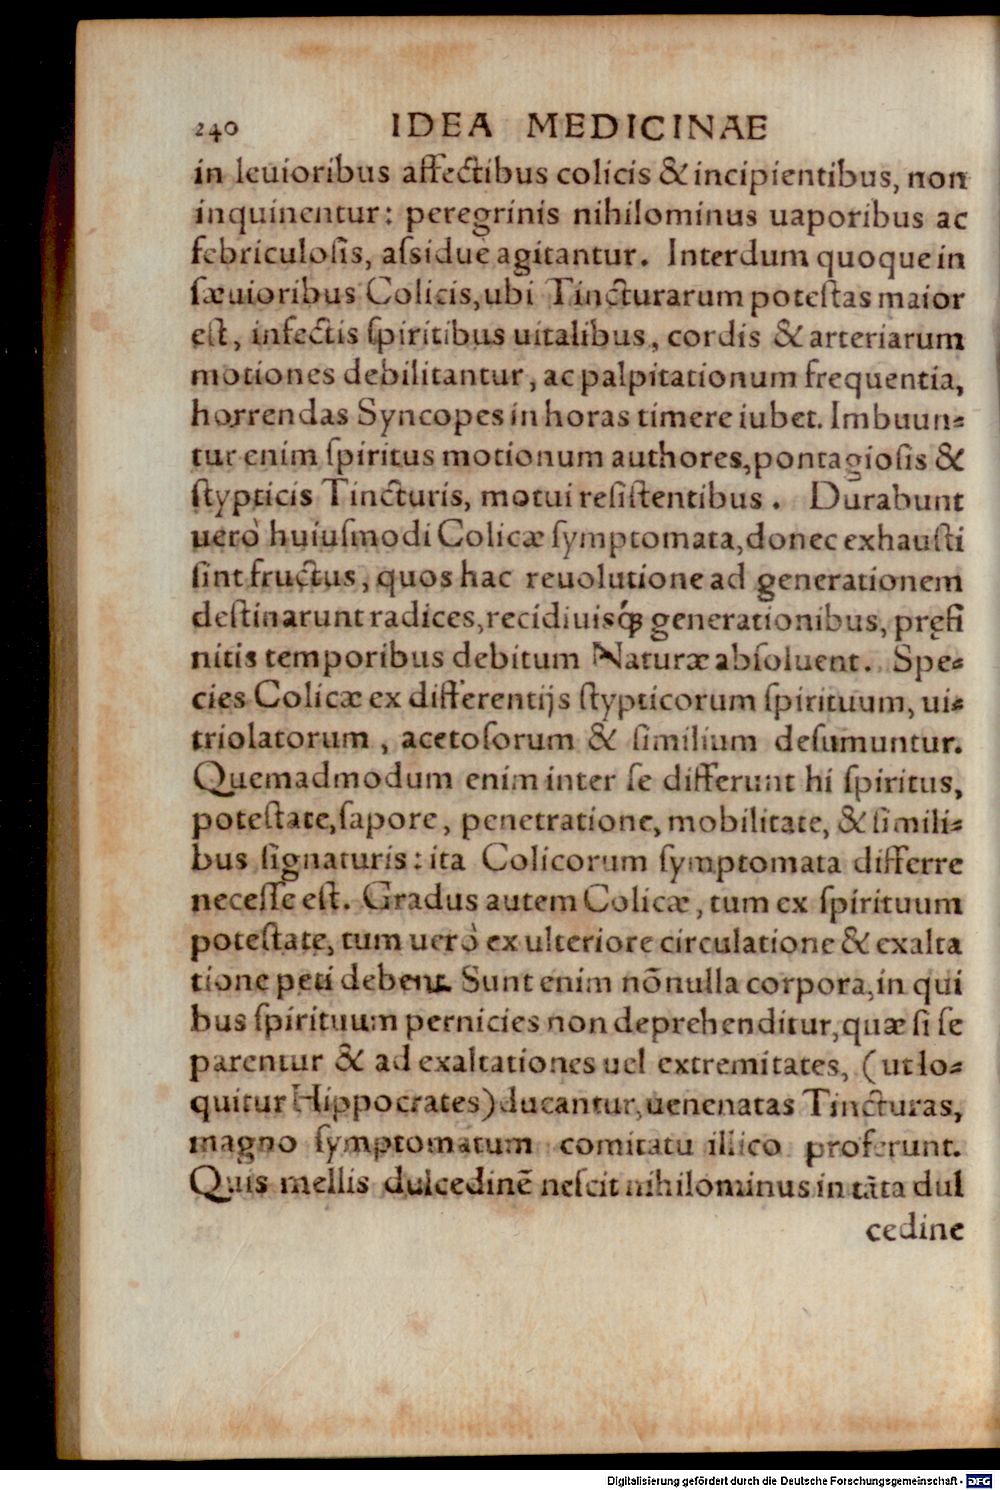 240 IDEA MEDICINAE
in leuioribus affectibus colicis & incipientibus, non
inquinentur: peregrinis nihilominus uaporibus ac
febriculosis, assiduè agitantur. Interdum quoque in
sæuioribus Colicis, ubi Tincturarum potestas maior
est, infectis spiritibus uitalibus, cordis & arteriarum
motiones debilitantur, ac palpitationum frequentia,
horrendas Syncopes in horas timere iubet. Imbuun=
tur enim spiritus motionum authores, pontagiosis &
stypticis Tincturis, motui resistentibus. Durabunt
uerò huiusmodi Colicæ symptomata, donec exhausti
sint fructus, quos hac reuolutione ad generationem
destinarunt radices, recidiuisq́; generationibus, pręfi
nitis temporibus debitum Naturæ absoluent. Spe=
cies Colicæ ex differentijs stypticorum spirituum, ui=
triolatorum, acetosorum & similium desumuntur.
Quemadmodum enim inter se differunt hi spiritus,
potestate, sapore, penetratione, mobilitate, & simili=
bus signaturis: ita Colicorum symptomata differre
necesse est. Gradus autem Colicæ, tum ex spirituum
potestate, tum uerò ex ulteriore circulatione & exalta
tione peti debent. Sunt enim nõnulla corpora, in qui
bus spirituum pernicies non deprehenditur, quæ si se
parentur & ad exaltationes uel extremitates, (ut lo=
quitur Hippocrates) ducantur, uenenatas Tincturas,
magno symptomatum comitatu illico proferunt.
Quis mellis dulcedinẽ nescit nihilominus in tãta dul
cedine
Digitalisierung gefördert durch die Deutsche Forschungsgemeinschaft - DFG